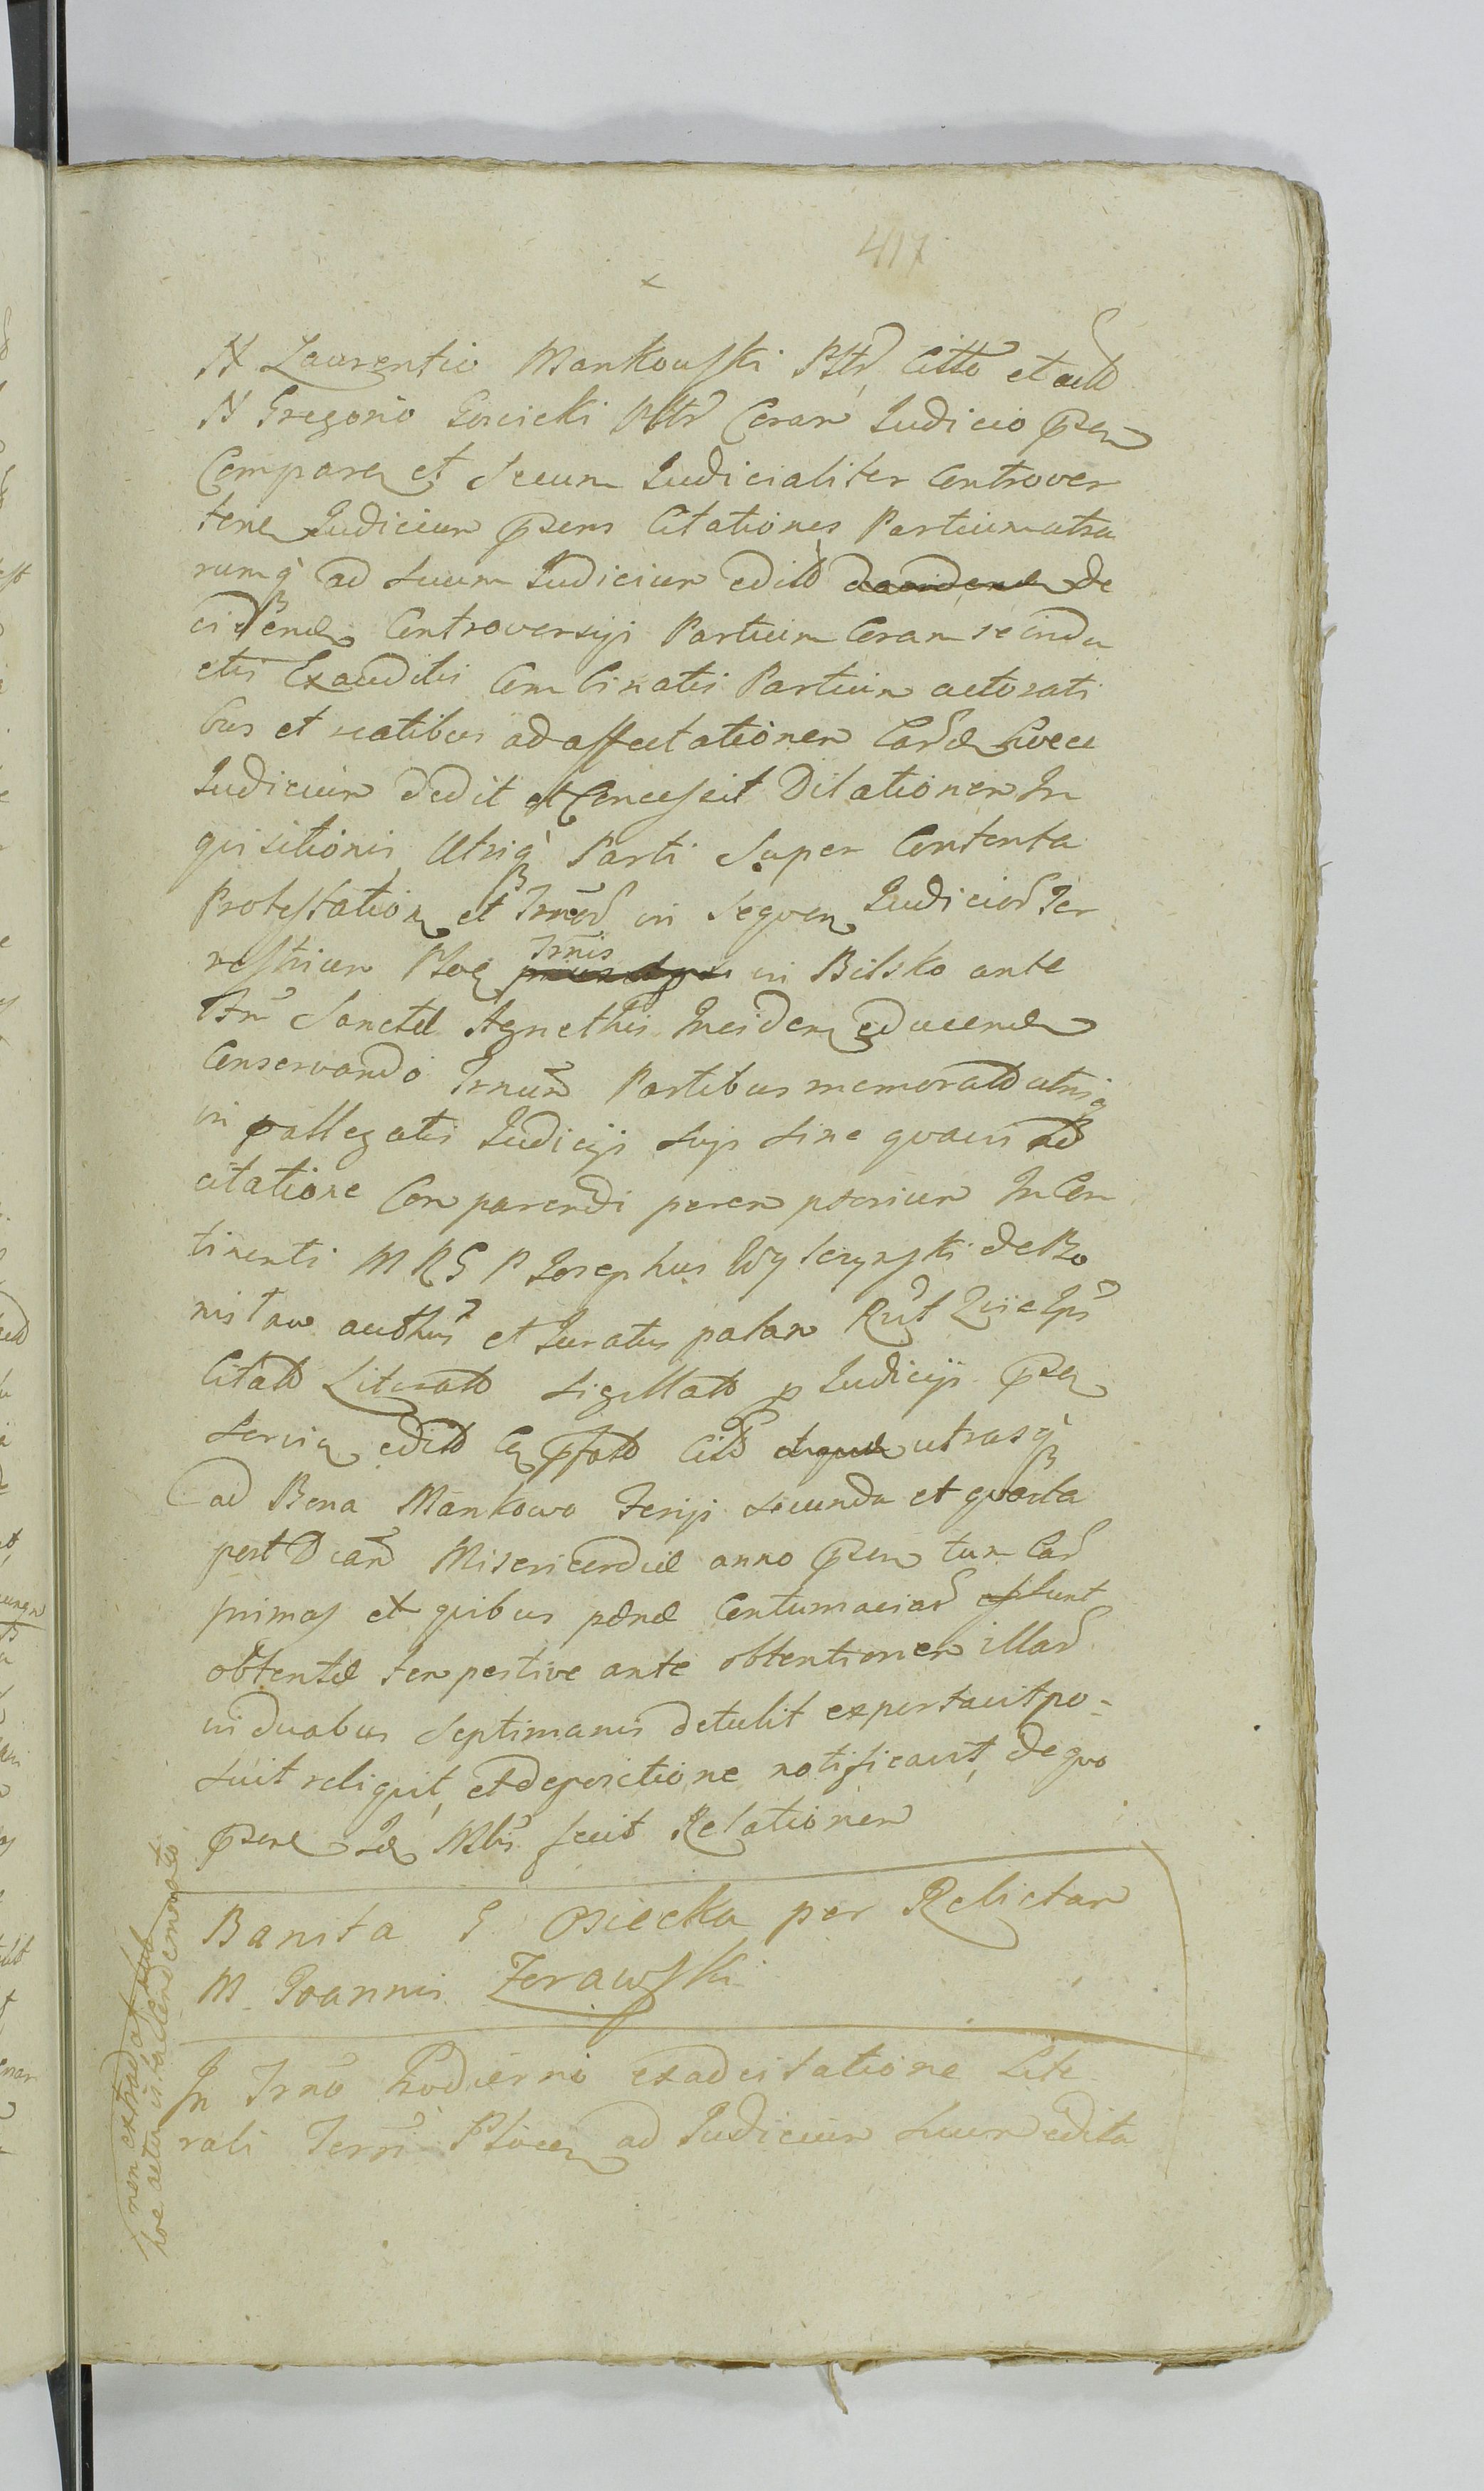 417
N Laurentio Mankowski Pltr Citto et acto
N Gregorio Goscicki Pltr Coram Judicio psen
Comparen et Secum Judicialiter Controver
ten Judicium psens Citationes Partium utra
rumq ad suum Judicium edito De
cidend Controversiji Partium Coram se indu
ctis Exauditis Combinatis Partium actorati
bus et reatibus ad affectationem
Judicium dedit et Concessit Dilationem In
quisitionis Utriq Parti Super Contenta
Protestation et in sequen Judicior Ter
restrium Ploc Trnis in Bilsko ante
Sanctæ Agnethis Ineiden educend
Conservando Trnum Partibus memorato utriq
in pallegatis Judicijs sujs sine quavis ad
citatione Comparendi peremptorium In Con
tinenti M R G P Josephus Wylezynski de Bo
nislaw authus et Juratus palam Quia Ipse
Citato Literato Sigillato p Judicij psen
servien edito pfato Cito utrasq
ad Bona Mankowo Ferijs secunda et quarta
post Dcam Misericordiæ anno psen tum Cad
primas et quibus pænæ Contumaciar sunt
obtentæ tempestive ante obtentionem illar
in duabus septimanis detulit exportavit po=
suit reliquit et depositione notificavit, de quo
psens Mtr fecit Relationem
Banita G Osiecka per Relictam
M. Joannis Zerawski
In Trno hodierno ex adcitatione Lite
rali Terri Plocen ad Judicium suum edita
non extradat
hoc actum